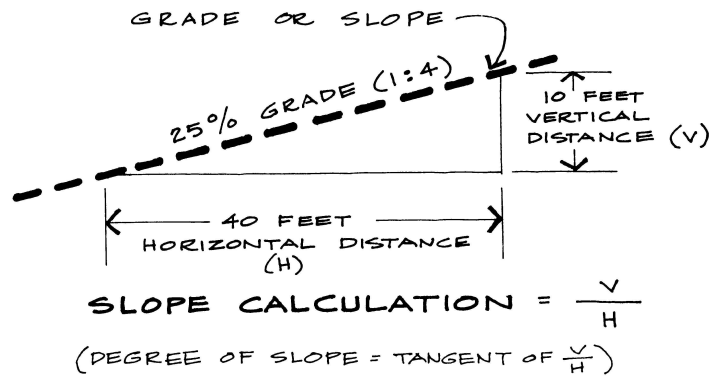 GRADE OR SLOPE
25% GRADE (1:4)
10 FEET
VERTICAL
DISTANCE (V)
40 FEET
HORIZONTAL DISTANCE
(H)
SLOPE CALCULATION = V/H
(DEGREE OF SLOPE = TANGENT OF V/H)